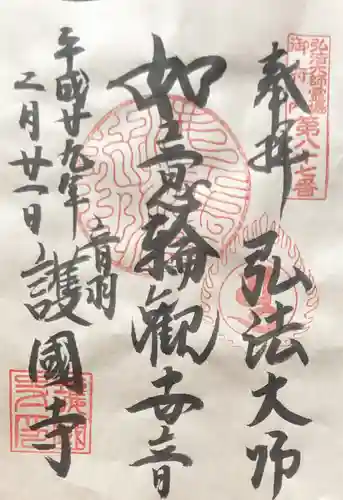 弘法大師霊場
御府内
第八十七番
奉拝
弘法大师
如意輪觀世音
音羽
護國寺
平成廿九年
二月廿一日